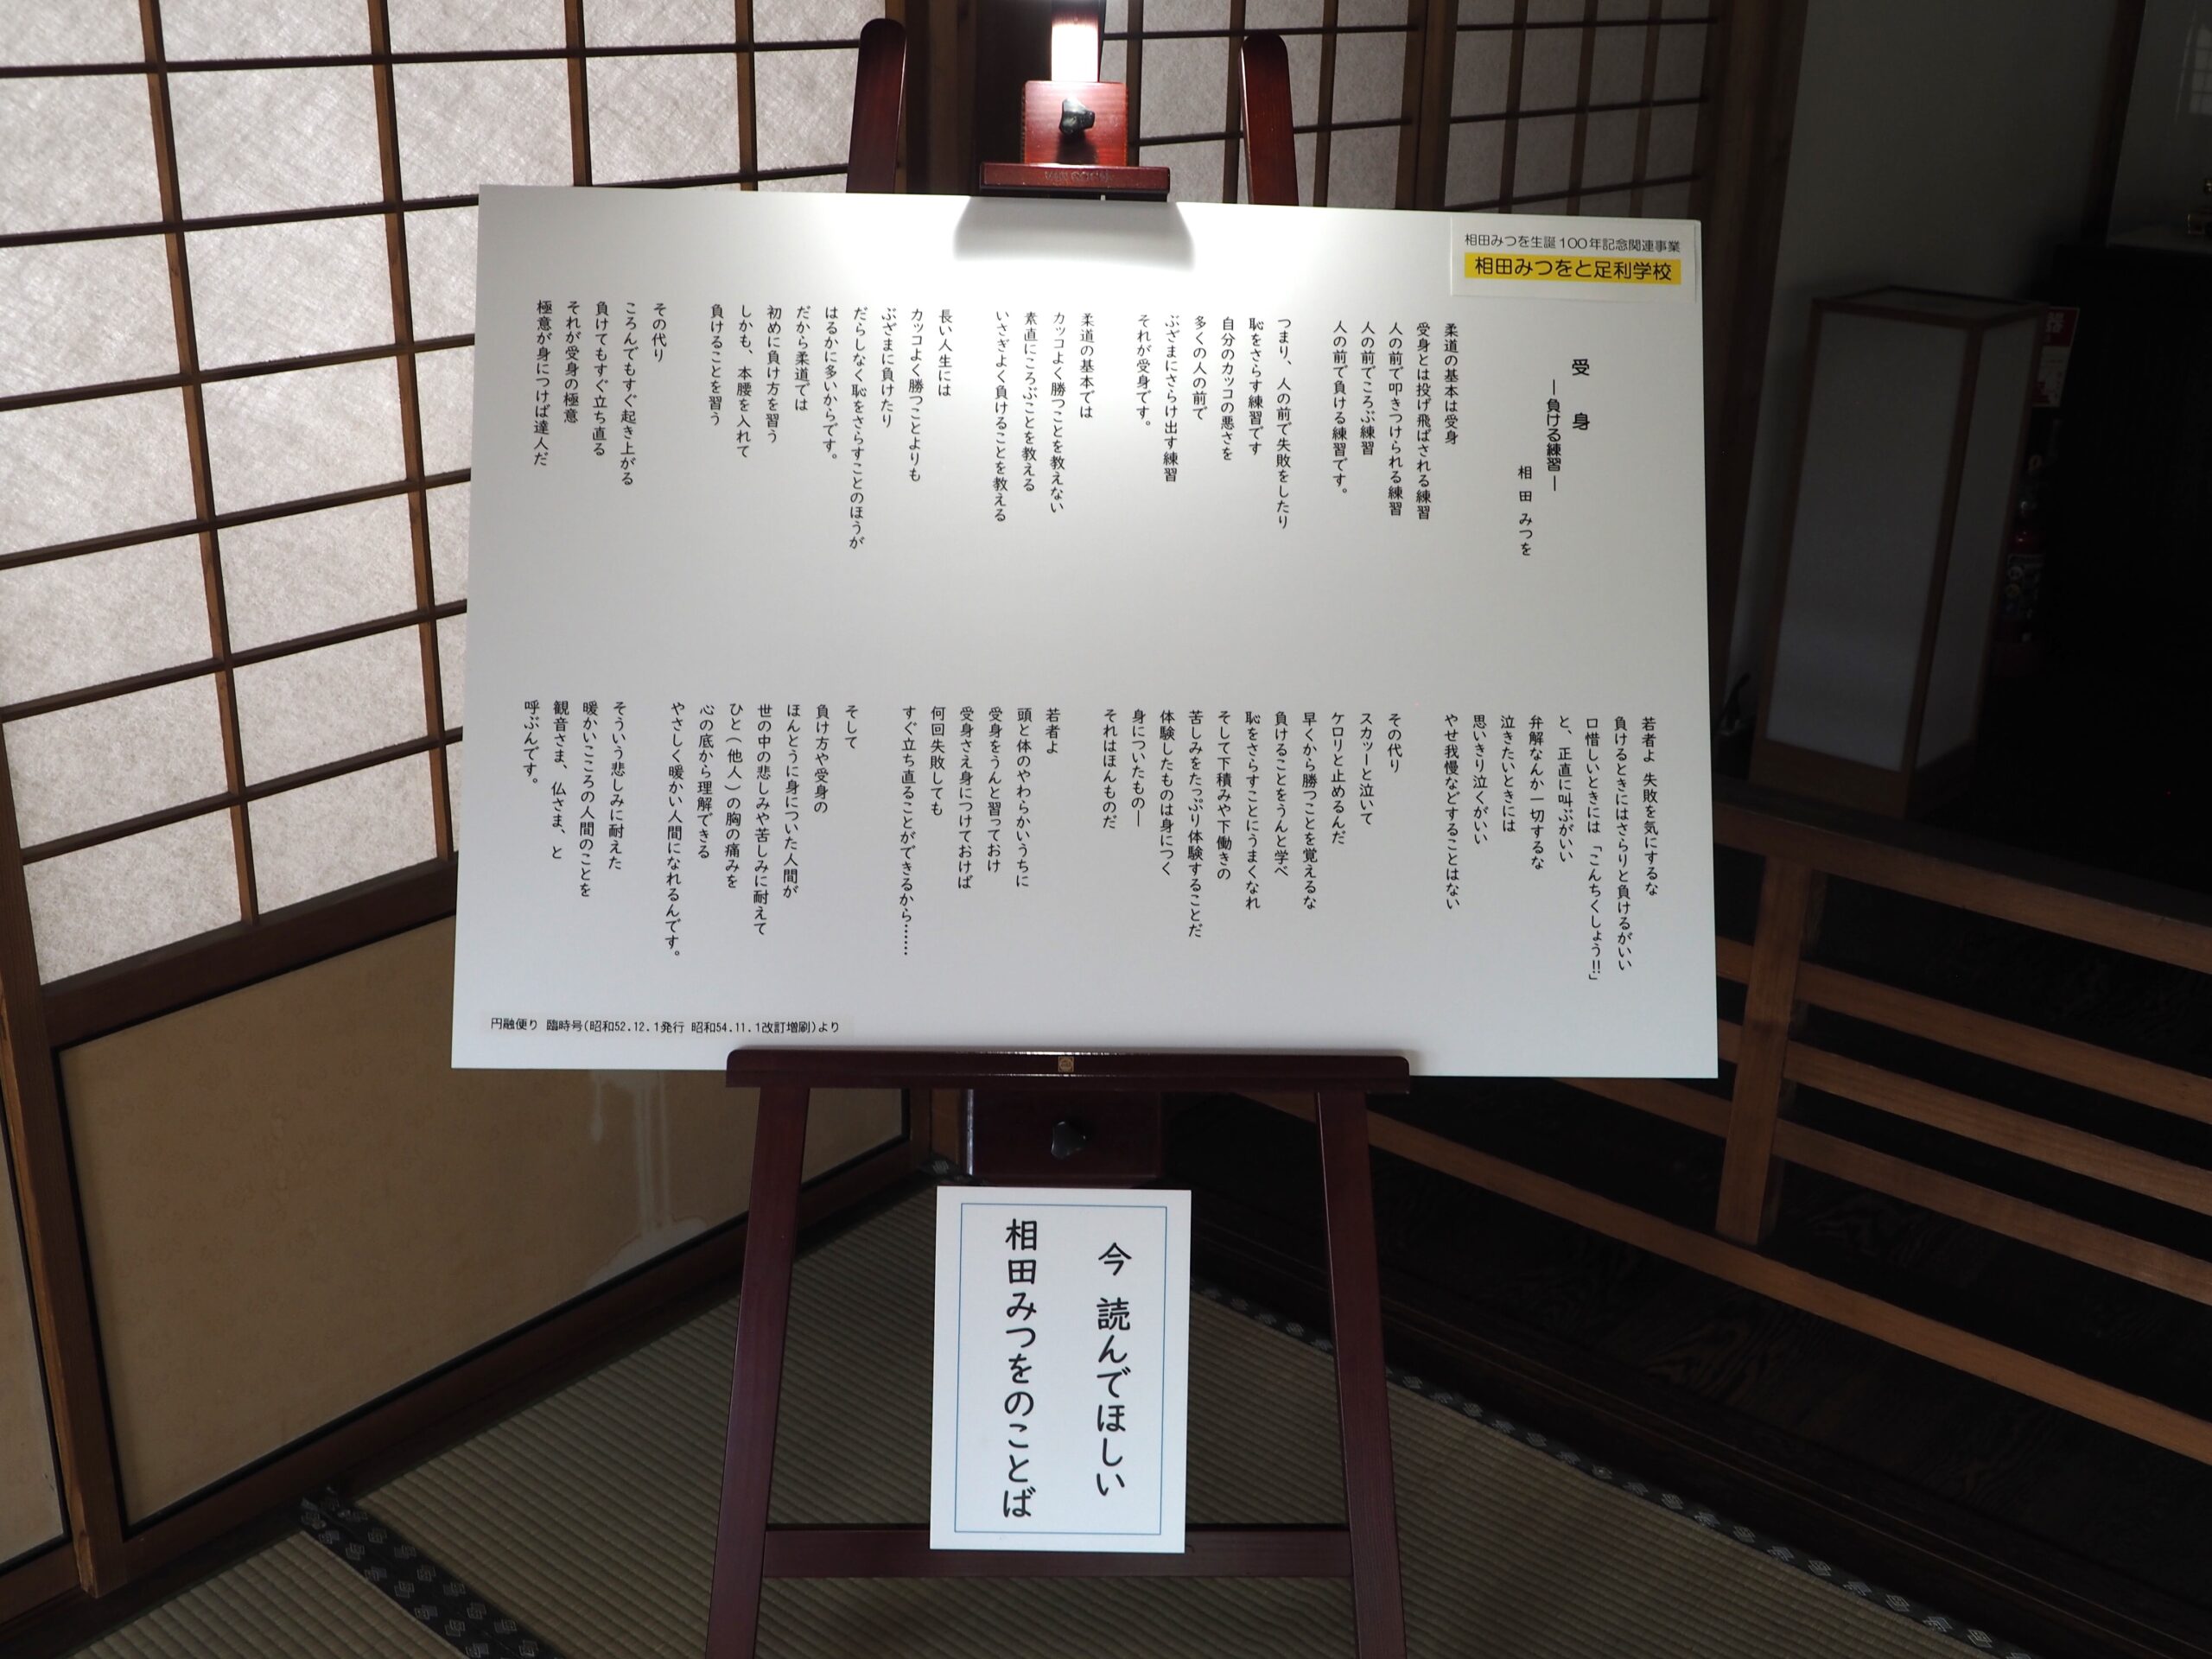 相田みつを生誕100年記念関連事業
相田みつをと足利学校
受 身
―負ける練習―
相田 みつを
柔道の基本は受身
受身とは投げ飛ばされる練習
人の前で叩きつけられる練習
人の前でころぶ練習
人の前で負ける練習です。
つまり、人の前で失敗をしたり
恥をさらす練習です
自分のカッコの悪さを
多くの人の前で
ぶざまにさらけ出す練習
それが受身です。
柔道の基本では
カッコよく勝つことを教えない
素直にころぶことを教える
いさぎよく負けることを教える
長い人生には
カッコよく勝つことよりも
ぶざまに負けたり
だらしなく恥をさらすことのほうが
はるかに多いからです。
だから柔道では
初めに負け方を習う
しかも、本腰を入れて
負けることを習う
その代り
ころんでもすぐ起き上がる
負けてもすぐ立ち直る
それが受身の極意
極意が身につけば達人だ
若者よ 失敗を気にするな
負けるときにはさらりと負けるがいい
口惜しいときには「こんちくしょう!!」
と、正直に叫ぶがいい
弁解なんか一切するな
泣きたいときには
思いきり泣くがいい
やせ我慢などすることはない
その代り
スカッーと泣いて
ケロリと止めるんだ
早くから勝つことを覚えるな
負けることをうんと学べ
恥をさらすことにうまくなれ
そして下積みや下働きの
苦しみをたっぷり体験することだ
体験したものは身につく
身についたもの―
それはほんものだ
若者よ
頭と体のやわらかいうちに
受身をうんと習っておけ
受身さえ身につけておけば
何回失敗しても
すぐ立ち直ることができるから……
そして
負け方や受身の
ほんとうに身についた人間が
世の中の悲しみや苦しみに耐えて
ひと(他人)の胸の痛みを
心の底から理解できる
やさしく暖かい人間になれるんです。
そういう悲しみに耐えた
暖かいこころの人間のことを
観音さま、仏さま、と
呼ぶんです。
円融便り 臨時号(昭和52.12.1発行 昭和54.11.1改訂増刷)より
今 読んでほしい
相田みつをのことば